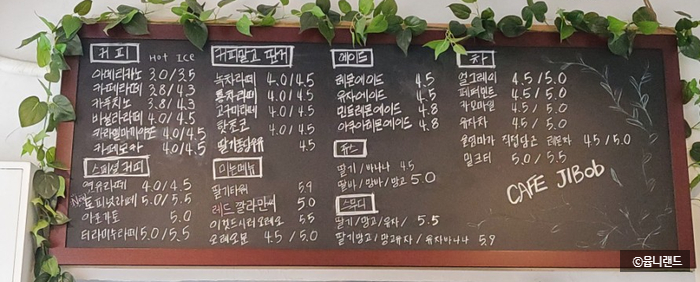 커피 Hot Ice
아메리카노 3.0/3.5
카페라떼 3.8/4.3
카푸치노 3.8/4.3
바닐라라떼 4.0/4.5
카라멜마끼아또 4.0/4.5
카페모카 4.0/4.5
스페셜 커피
연유라떼 4.0/4.5
New 토피넛라떼 5.0/5.5
아포가토 5.0
티라미수라떼 5.0/5.5
커피말고 딴거
녹차라떼 4.0/4.5
홍차라떼 4.0/4.5
고구마라떼 4.0/4.5
핫초코 4.0/4.5
딸기듬뿍우유 4.5
미는메뉴
딸기타워 5.9
레드 깔라만씨 5.0
5.5
오레오 4.5/5.0
에이드
레몬에이드 4.5
유자에이드 4.5
민트레몬에이드 4.8
아쿠아레몬에이드 4.8
쥬스
딸기/바나나 4.5
딸바/망바/망고 5.0
스무디
딸기/망고/유자/ 5.5
딸기망고/망고유자/유자바나나 5.9
차
얼그레이 4.5/5.0
페퍼민트 4.5/5.0
카모마일 4.5/5.0
유자차 4.5/5.0
울엄마가 직접담근 레몬차 4.5/5.0
밀크티 5.0/5.5
CAFE JIBob
©윰니랜드